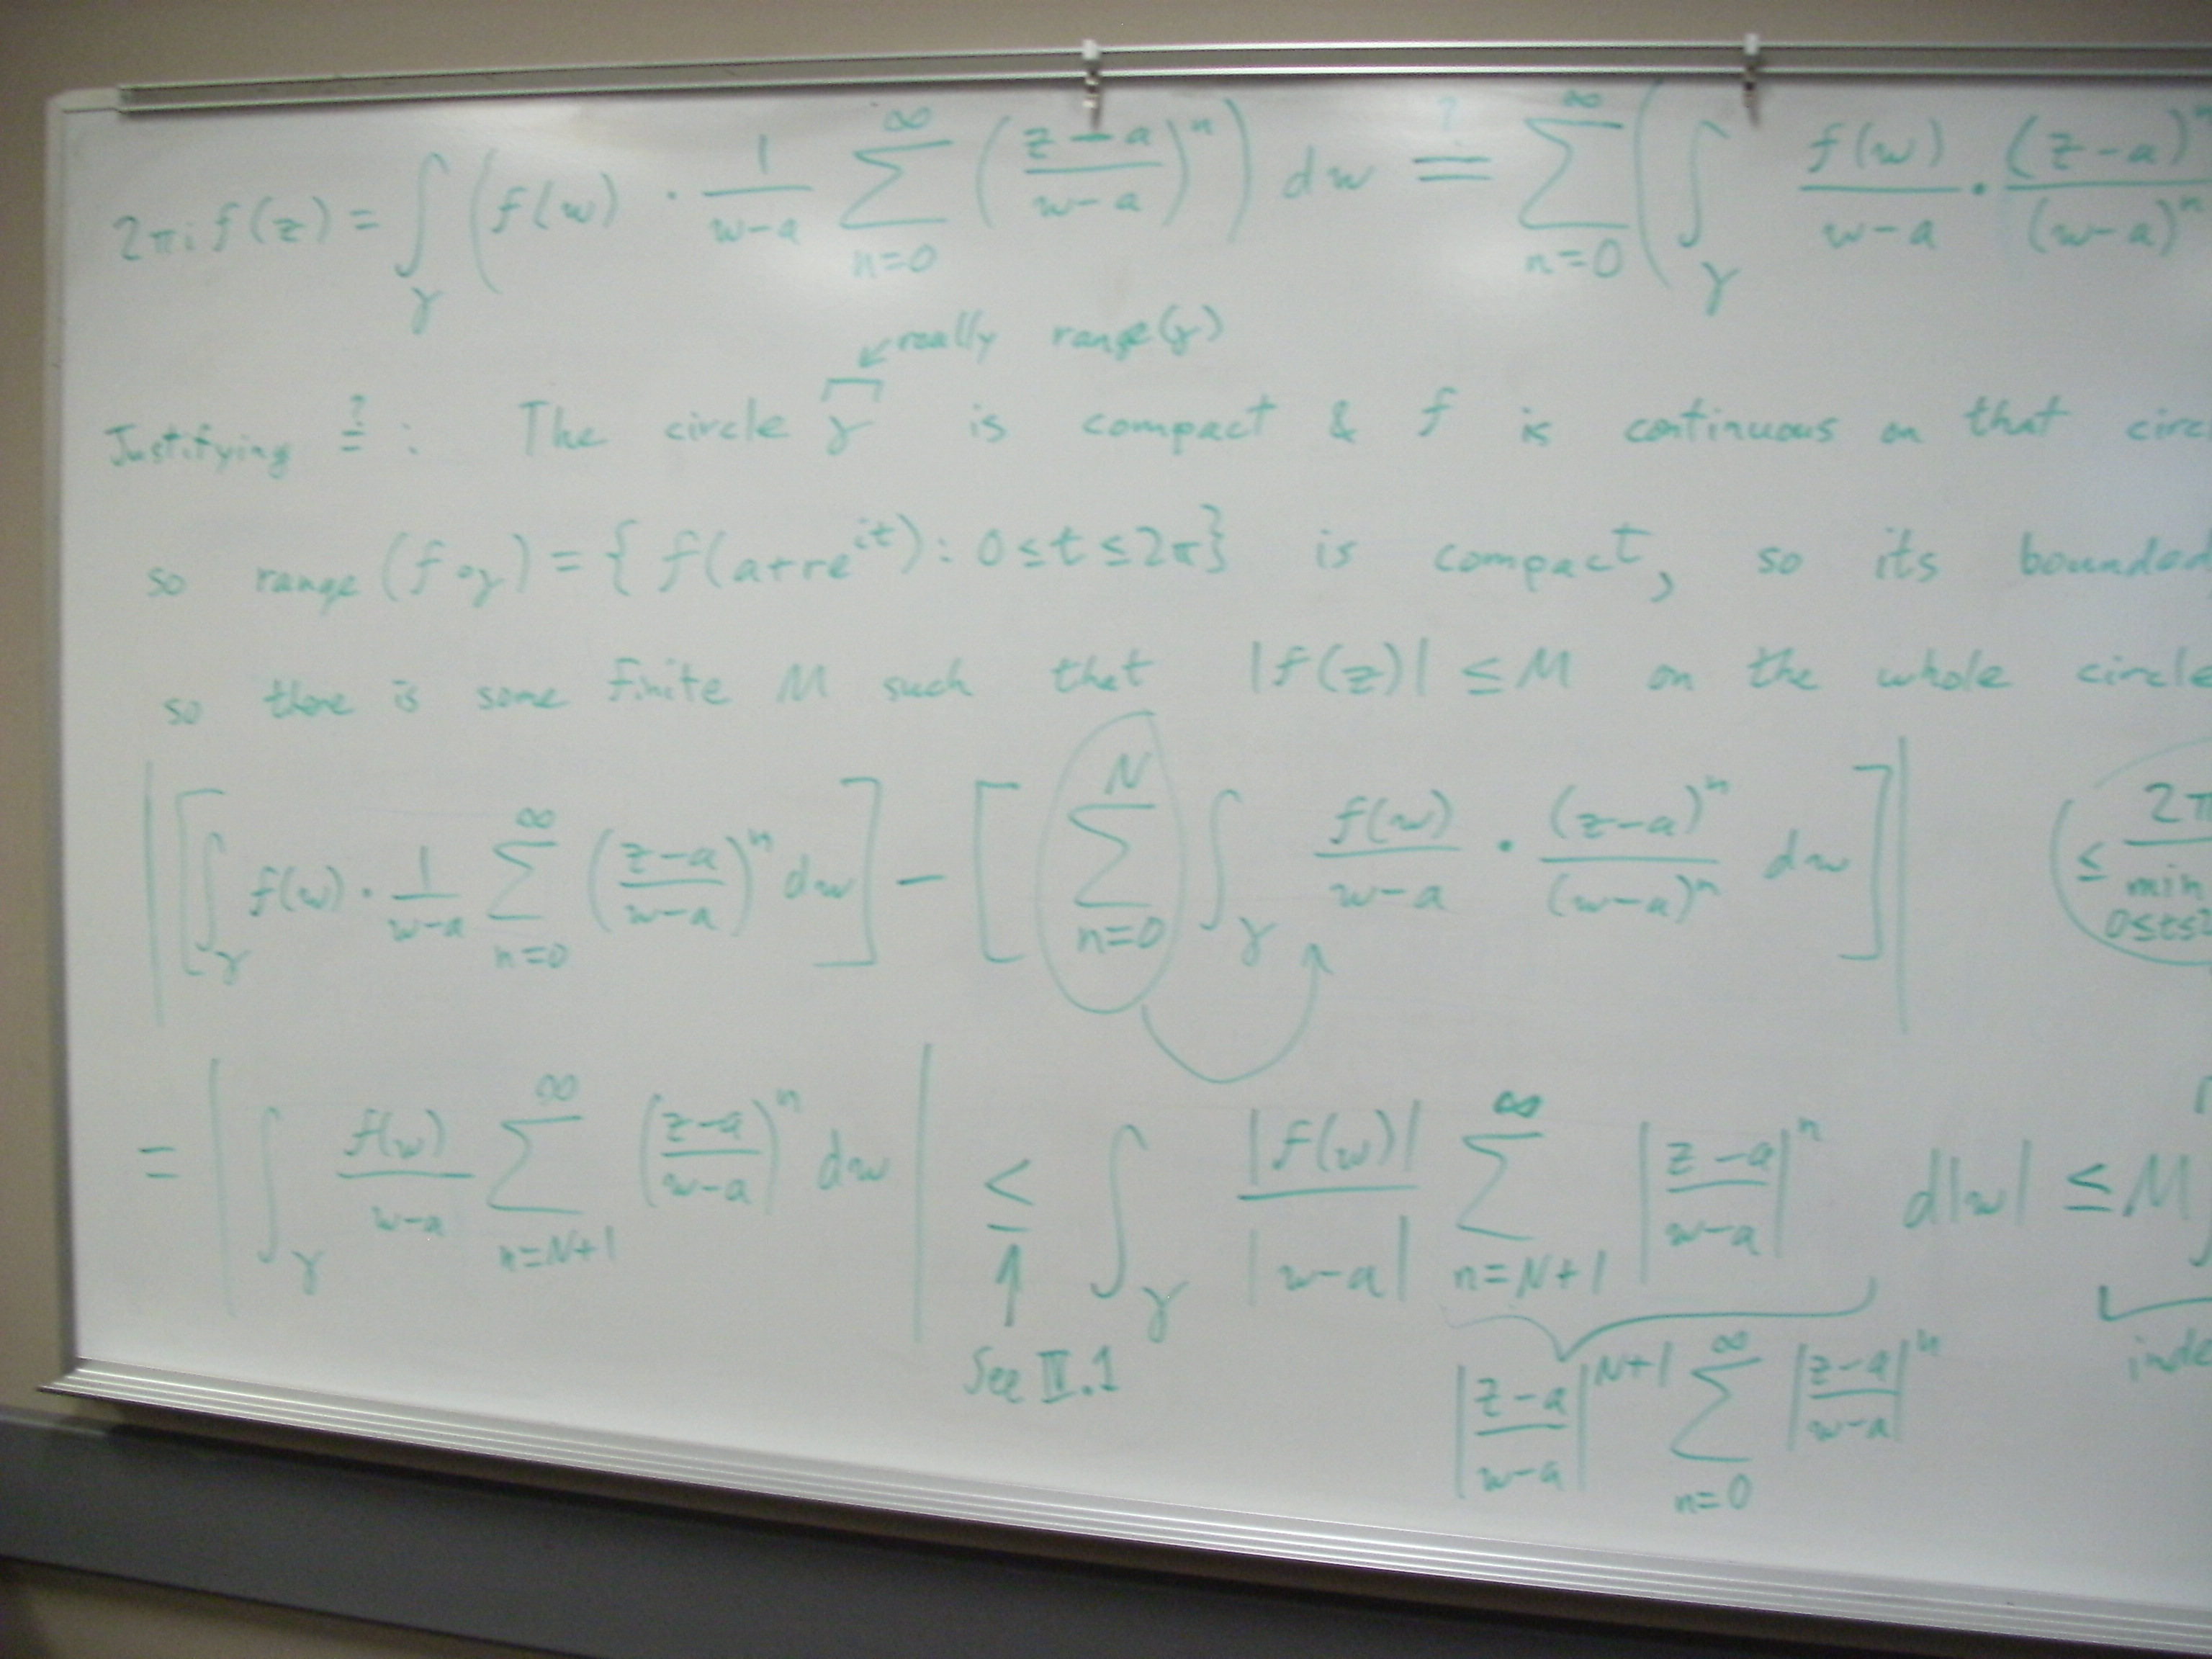 2πi f(z) = ∫_γ ( f(w) · 1/(w-a) ∑_{n=0}^{∞} ( (z-a)/(w-a) )^n ) dw ≟ ∑_{n=0}^{∞} ( ∫_γ f(w)/(w-a) · (z-a)^n/(w-a)^n
↙ really range(γ)
Justifying ≟ : The circle γ is compact & f is continuous on that circ
so range (f∘γ) = { f(a+re^{it}) : 0≤t≤2π } is compact, so its bounded,
so there is some finite M such that |f(z)| ≤ M on the whole circle
| [ ∫_γ f(w) · 1/(w-a) ∑_{n=0}^{∞} ( (z-a)/(w-a) )^n dw ] - [ ∑_{n=0}^{N} ∫_γ f(w)/(w-a) · (z-a)^n/(w-a)^n dw ] | ( ≤ 2π / min 0≤t≤2
= | ∫_γ f(w)/(w-a) ∑_{n=N+1}^{∞} ( (z-a)/(w-a) )^n dw | ≤ ∫_γ |f(w)|/|w-a| ∑_{n=N+1}^{∞} | (z-a)/(w-a) |^n d|w| ≤ M ∫
↑
See IV.1
| (z-a)/(w-a) |^{N+1} ∑_{n=0}^{∞} | (z-a)/(w-a) |^n
inde